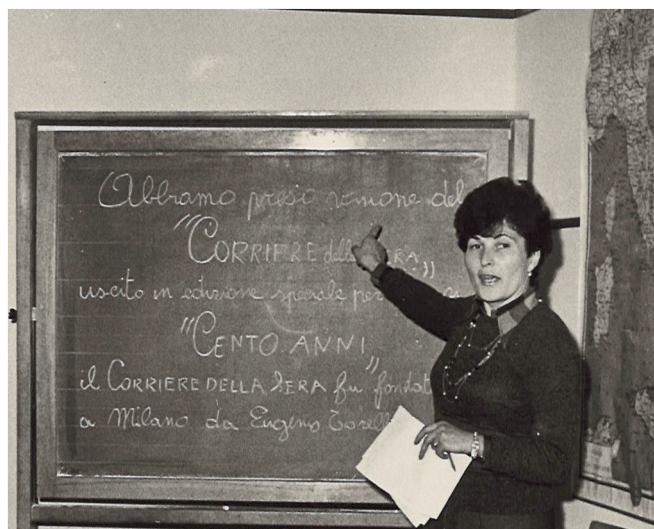 Abbiamo preso visione del
"CORRIERE della SERA"
uscito in edizione speciale per
"CENTO ANNI"
il CORRIERE DELLA SERA fu fondat
a Milano da Eugenio Torelli